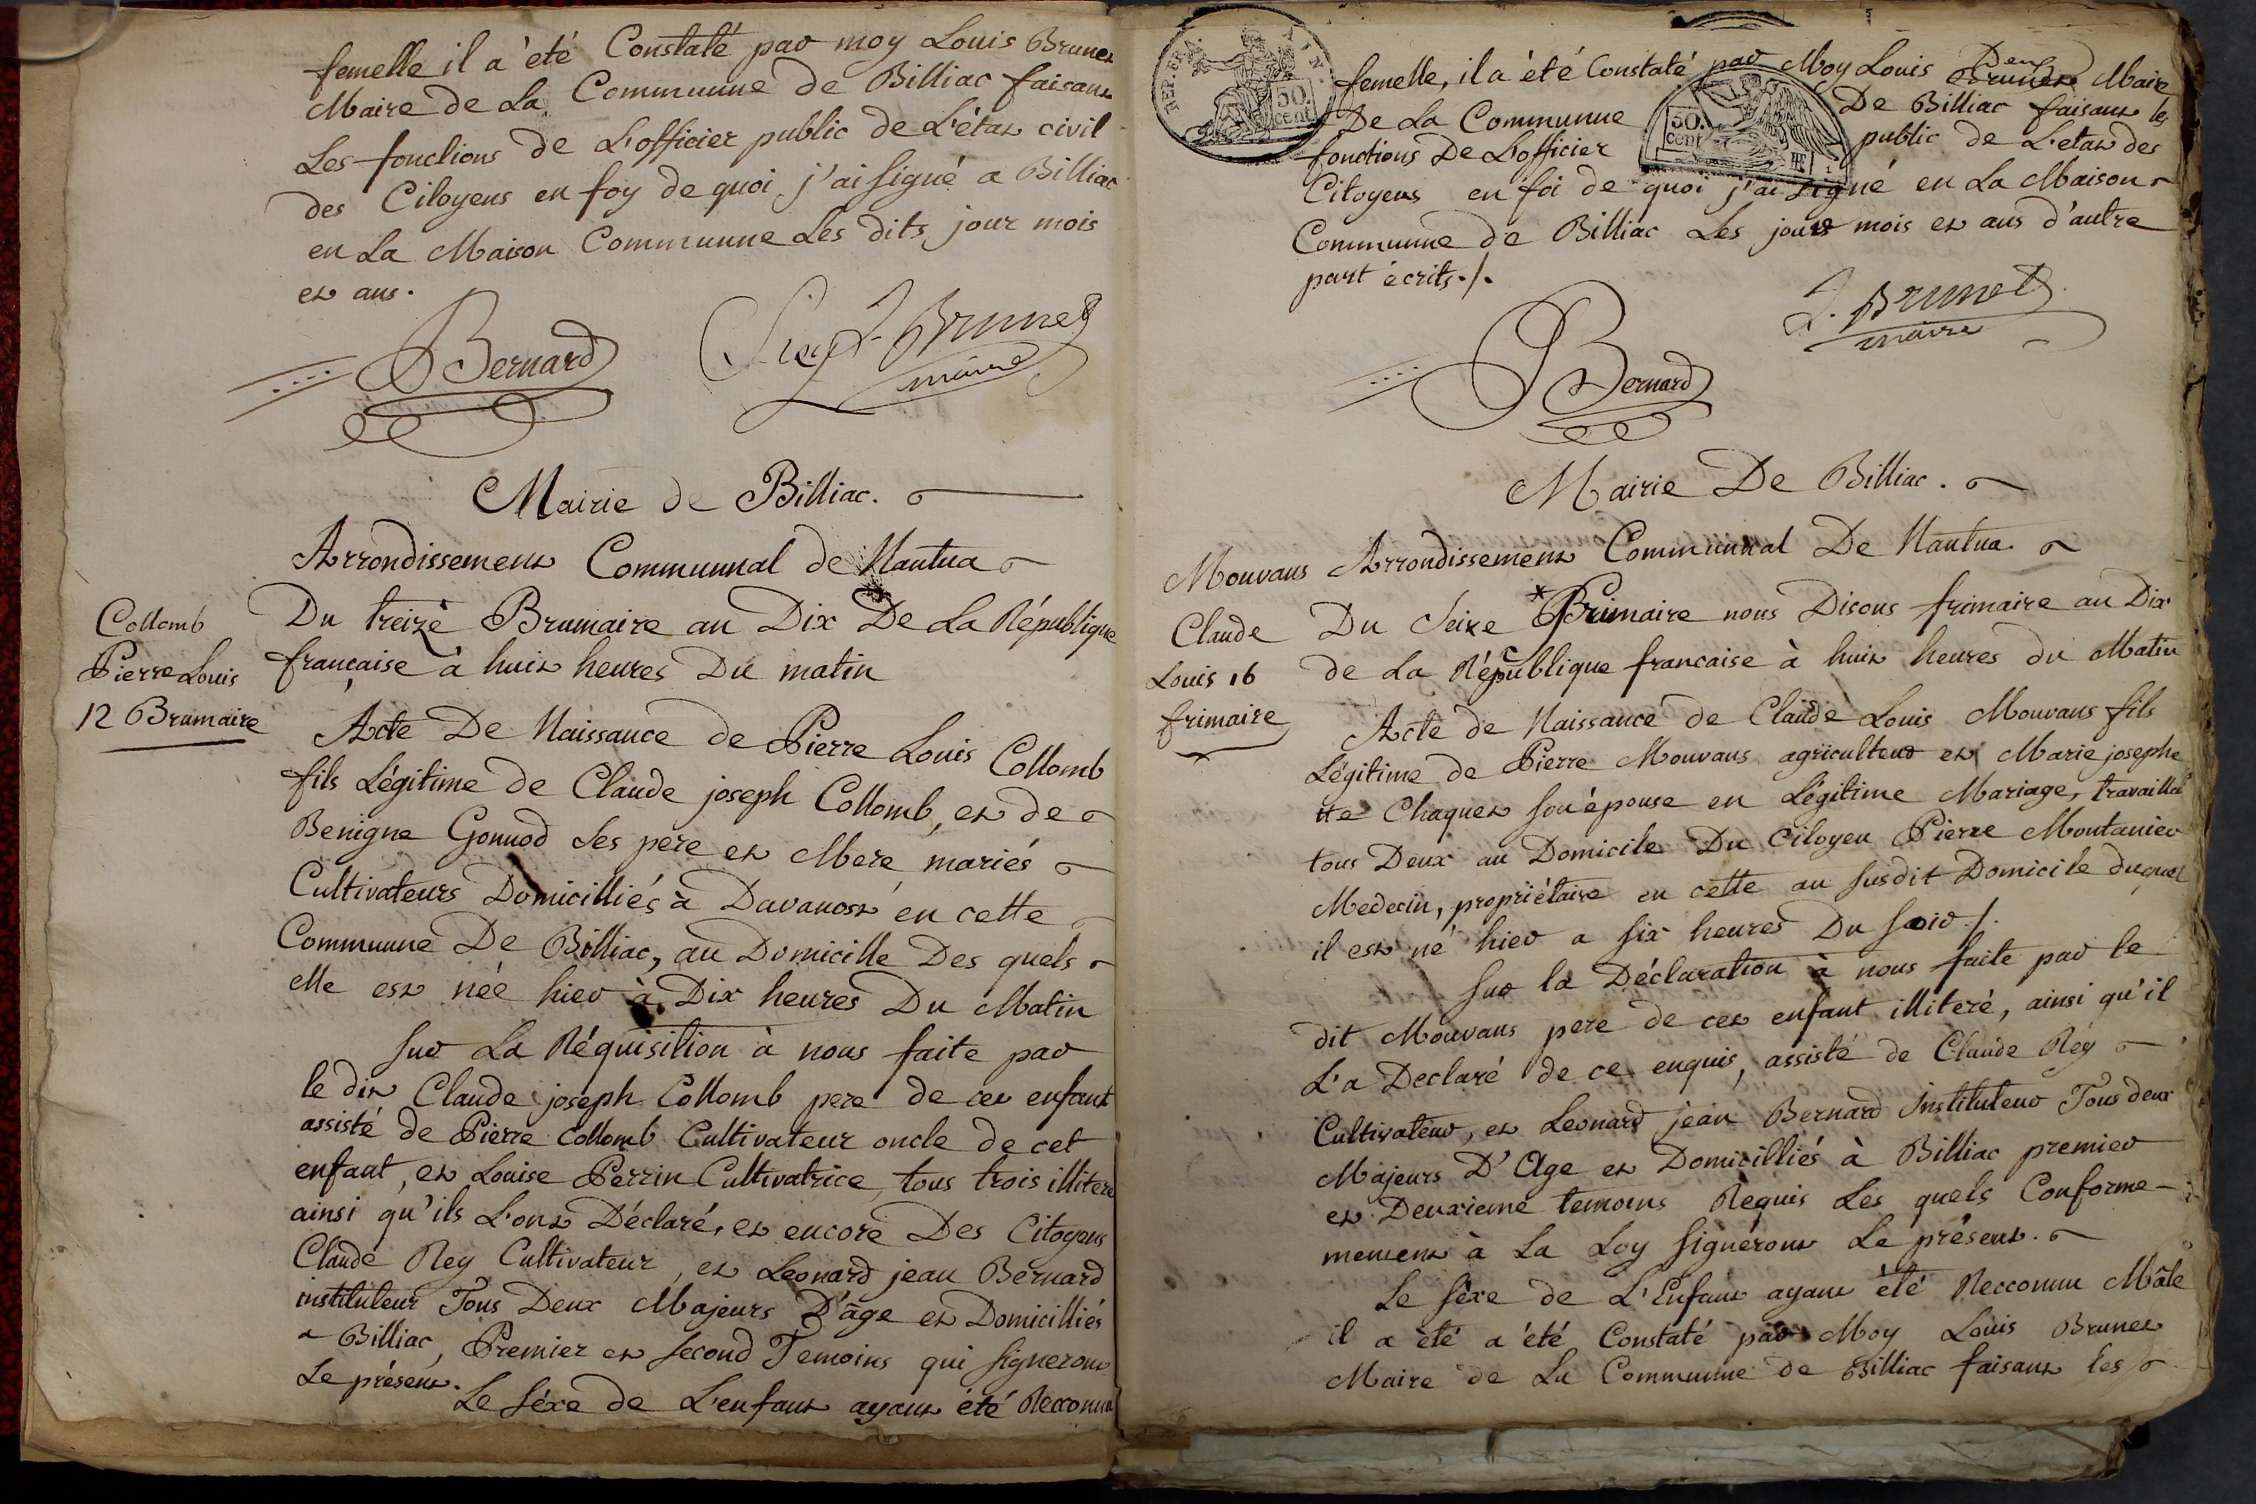 femelle il a été Constaté par moy Louis Brunet
Maire de La Communne de Billiac faisant
Les fonctions de L'officier public de L'état civil
des Citoyens en foy de quoi j'ai signé a Billiac
en La Maison Communne Les dits jour mois
et ans.
Bernard
L. Brunet
maire
Mairie de Billiac.
Arrondissement Communnal de Nantua
Collomb
Pierre Louis
12 Brumaire
Du treizè Brumaire an Dix De La République
française à huit heures Du matin
Acte De Naissance de Pierre Louis Collomb
fils Légitime de Claude joseph Collomb, et de
Benigne Gonnod Ses pere et Mere mariés
Cultivateurs Domicilliés à Davanost en cette
Communne De Billiac, au Domicille Des quels
elle est née hier à Dix heures Du Matin
Sur La Réquisition à nous faite par
le dit Claude joseph Collomb pere de cet enfant
assisté de Pierre Collomb Cultivateur oncle de cet
enfant, et Louise Perrin Cultivatrice, tous trois illiteré
ainsi qu'ils L'ont Déclaré, et encore Des Citoyens
Claude Rey Cultivateur, et Leonard jean Bernard
instituteur Tous Deux Majeurs D'âge et Domicilliés
a Billiac, Premier et second Temoins qui signeront
Le présent.
Le séxe de L'enfant ayant été Recconnu
REP. FRA.
50.
cent
femelle, il a été Constaté par Moy Louis Brunet Maire
De La Communne De Billiac faisant les
50.
cent
fonctions De L'officier public de L'etat des
Citoyens en foi de quoi j'ai signé en La Maison
Communne de Billiac Les jours mois et ans d'autre
part écrits./.
L. Brunet
maire
Bernard
Mairie De Billiac.
Arrondissement Communnal De Nantua.
Mouvans
Claude
Louis 16
frimaire
Du Seize * Brimaire nous Disons frimaire an Dix
de La République francaise à huit heures du Matin
Acte de Naissance de Claude Louis Mouvans fils
Légitime de Pierre Mouvans agriculteur et Marie josephe
tte Chaquet son épouse en Légitime Mariage, travaillant
tous Deux au Domicile Du Citoyen Pierre Montanier
Medecin, propriétaire en cette au susdit Domicile duquel
il est né hier a six heures Du soir./.
Sur la Déclaration à nous faite par le
dit Mouvans pere de cet enfant illiteré, ainsi qu'il
L'a Declaré de ce enquis, assisté de Claude Rey
Cultivateur, et Leonard jean Bernard Instituteur Tous deux
Majeurs D'Age et Domicilliés à Billiac premier
et Deuxieme temoins Réquis Les quels Conforme-
mement à La Loy signeront Le présent.
Le séxe de L'Enfant ayant été Recconnu Mâle
il a été a été Constaté par Moy Louis Brunet
Maire de La Communne de Billiac faisant les